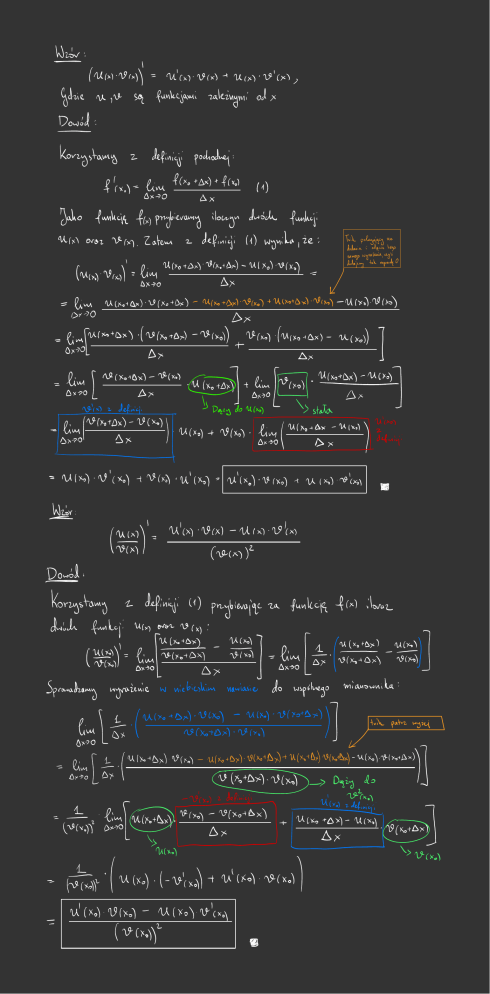 Wzór:
(u(x)·v(x))' = u'(x)·v(x) + u(x)·v'(x),
Gdzie u, v są funkcjami zależnymi od x
Dowód:
Korzystamy z definicji pochodnej:
f'(x₀) = lim Δx→0 f(x₀+Δx)+f(x₀) / Δx (1)
Jako funkcję f(x) przybieramy iloczyn dwóch funkcji
u(x) oraz v(x). Zatem z definicji (1) wynika, że:
(u(x)·v(x))' = lim Δx→0 u(x₀+Δx)·v(x₀+Δx) − u(x₀)·v(x₀) / Δx =
Trik polegający na
= lim Δx→0 u(x₀+Δx)·v(x₀+Δx) − u(x₀+Δx)·v(x₀) + u(x₀+Δx)·v(x₀) − u(x₀)·v(x₀) / Δx
= lim Δx→0 [ u(x₀+Δx)·(v(x₀+Δx) − v(x₀)) / Δx + v(x₀)·(u(x₀+Δx) − u(x₀)) / Δx ]
= lim Δx→0 [ v(x₀+Δx) − v(x₀) / Δx · u(x₀+Δx) ] + lim Δx→0 [ v(x₀) · u(x₀+Δx) − u(x₀) / Δx ]
Dąży do u(x₀)
stała
v'(x) z definicji
= lim Δx→0 ( v(x₀+Δx) − v(x₀) / Δx ) · u(x₀) + v(x₀) · lim Δx→0 ( u(x₀+Δx − u(x₀) / Δx )
= u(x₀)·v'(x₀) + v(x₀)·u'(x₀) = u'(x₀)·v(x₀) + u(x₀)·v'(x₀)
Wzór:
(u(x) / v(x))' = u'(x)·v(x) − u(x)·v'(x) / (v(x))²
Dowód.
Korzystamy z definicji (1) przybierając za funkcję f(x) iloraz
dwóch funkcji u(x) oraz v(x):
(u(x) / v(x))' = lim Δx→0 [ u(x₀+Δx) / v(x₀+Δx) − u(x₀) / v(x₀) / Δx ] = lim Δx→0 [ 1/Δx · ( u(x₀+Δx) / v(x₀+Δx) − u(x₀) / v(x₀) ) ]
Sprowadzamy wyrażenie w niebieskim nawiasie do wspólnego mianownika:
lim Δx→0 [ 1/Δx · ( u(x₀+Δx)·v(x₀) − u(x₀)·v(x₀+Δx) / v(x₀+Δx)·v(x₀) ) ]
trik patrz wyżej
= lim Δx→0 [ 1/Δx · ( u(x₀+Δx)·v(x₀) − u(x₀+Δx)·v(x₀+Δx) + u(x₀+Δx)·v(x₀+Δx) − u(x₀)·v(x₀+Δx) / v(x₀+Δx)·v(x₀) ) ]
Dąży do
v²(x₀)
= 1 / (v(x₀))² · lim Δx→0 [ u(x₀+Δx) · v(x₀) − v(x₀+Δx) / Δx + u(x₀+Δx) − u(x₀) / Δx · v(x₀+Δx) ]
u(x₀)
v(x₀)
= 1 / (v(x₀))² · ( u(x₀)·(−v'(x₀)) + u'(x₀)·v(x₀) )
= u'(x₀)·v(x₀) − u(x₀)·v'(x₀) / (v(x₀))²